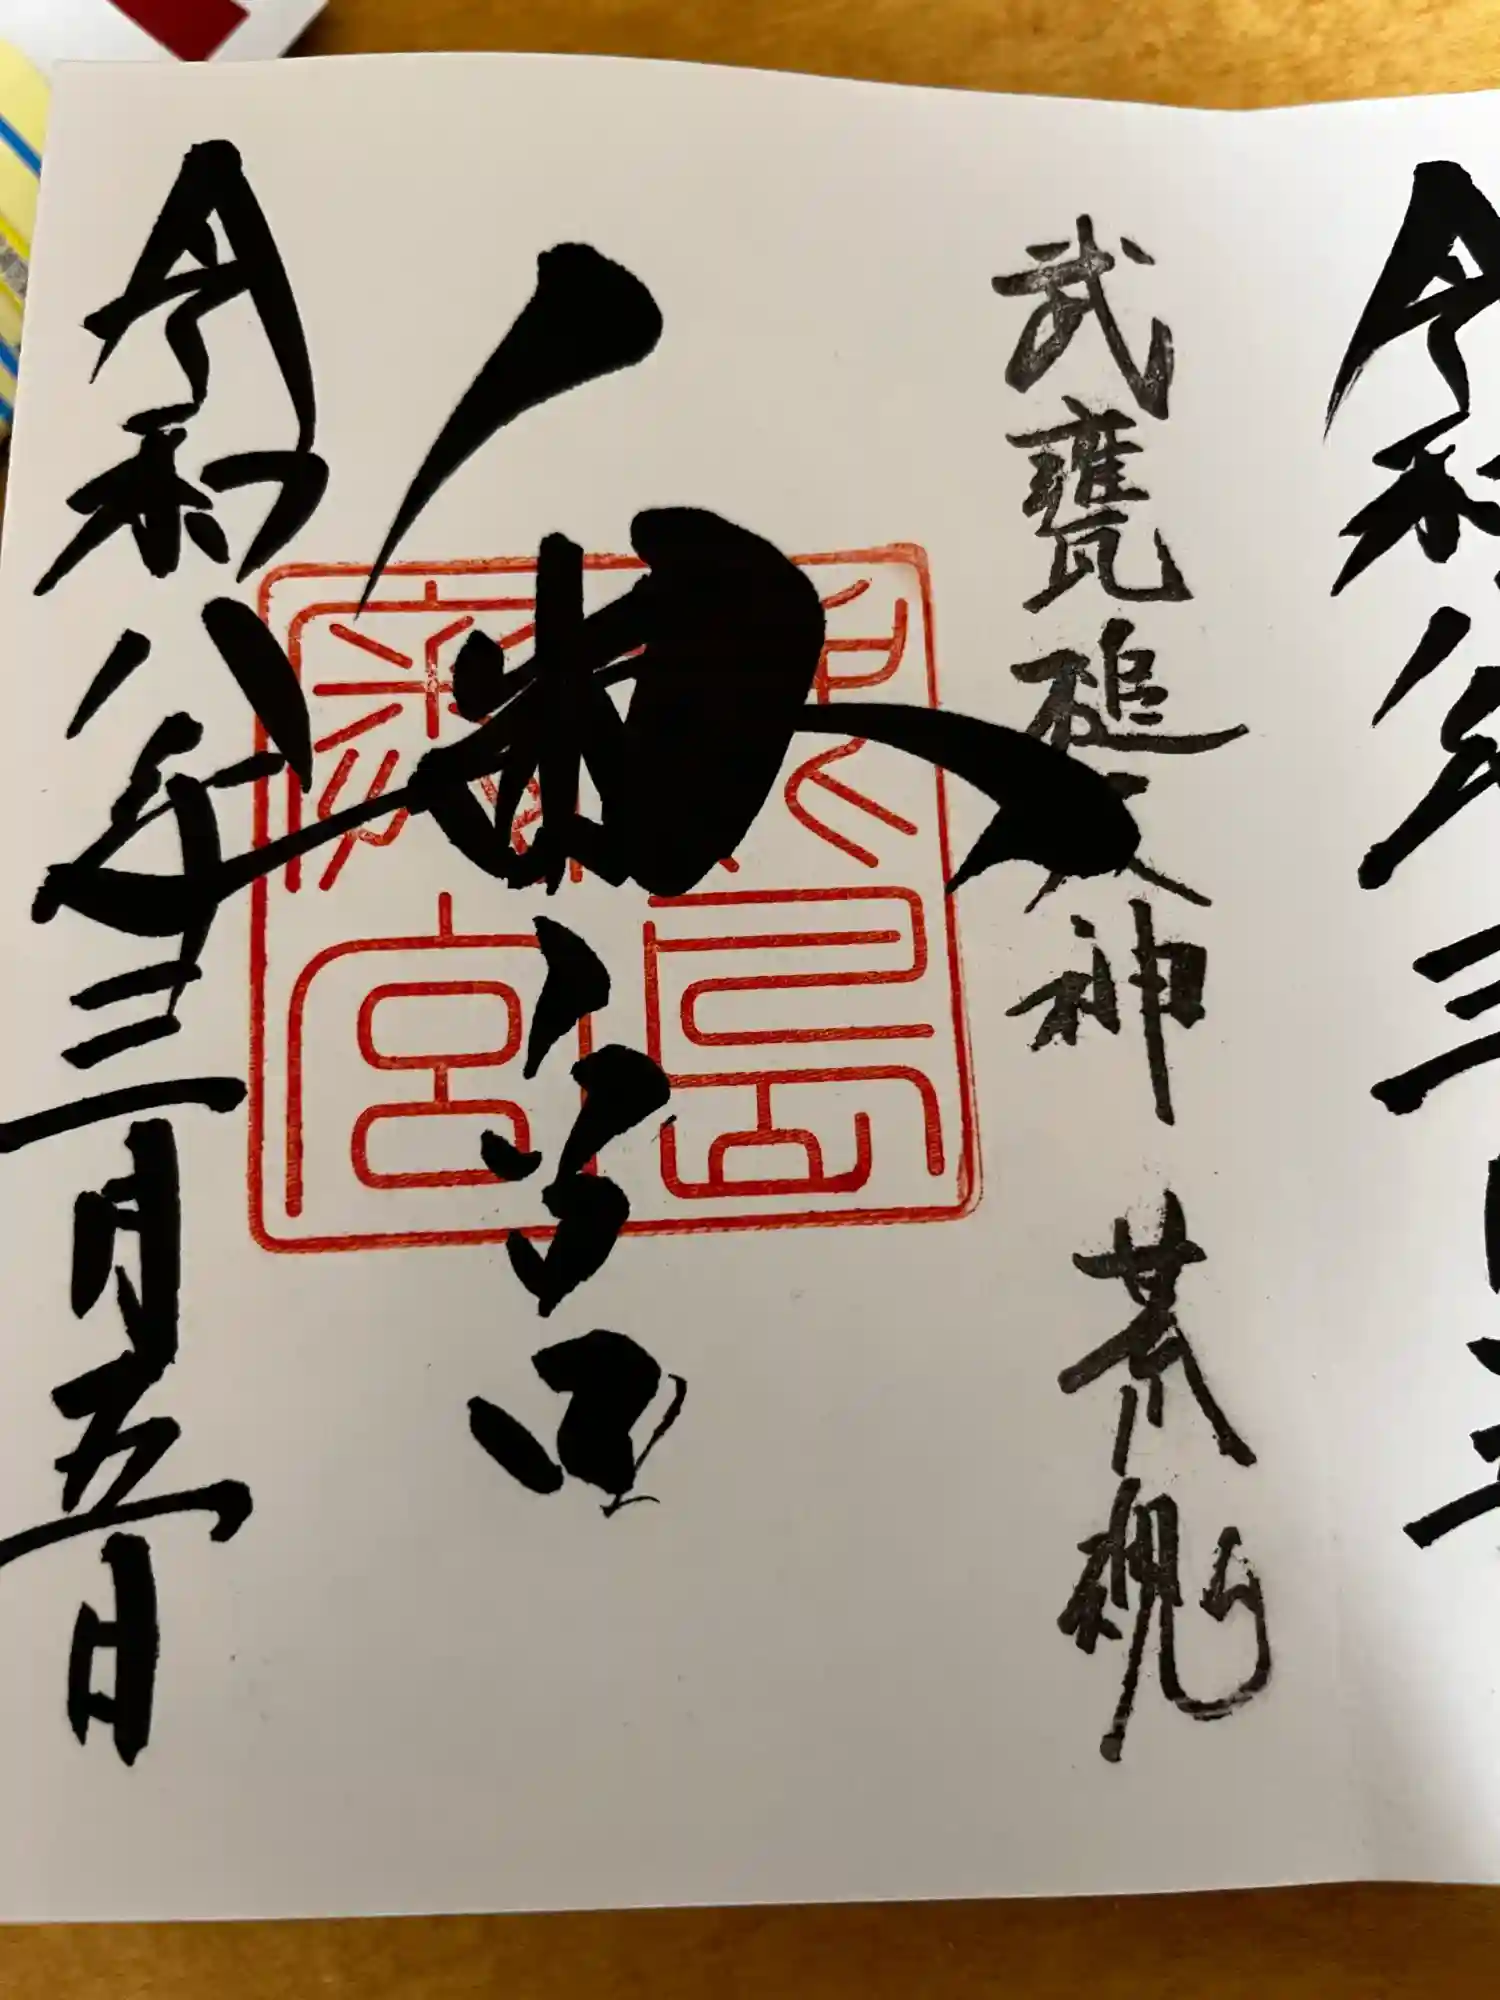 令和
武甕槌大神 荒魂
奥宮
鹿島
奥宮
令和八年三月五日